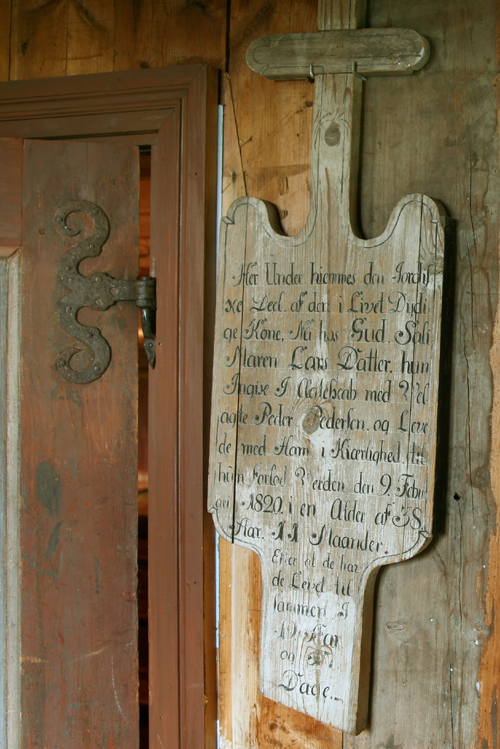 Her Under hiemmes den Jordi
ske Deel af den i Livet Dydi
ge Kone, Nu hos Gud, Sali
Maren Lars Datter, hun
Ingive I Ægteskab med Vel
agte Peder Pedersen, og Leve
de med Ham i Kiærlighed, til
hun forlod Verden den 9. Febru
ari 1820, i en Alder af 38
Aar, 11 Maander.
Efter at de har
de Levet til
sammen I
19 Aar
og
Dage.